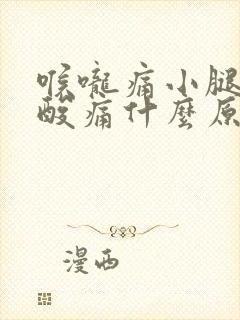 喉嚨痛小腿
酸痛什麼原
漫西